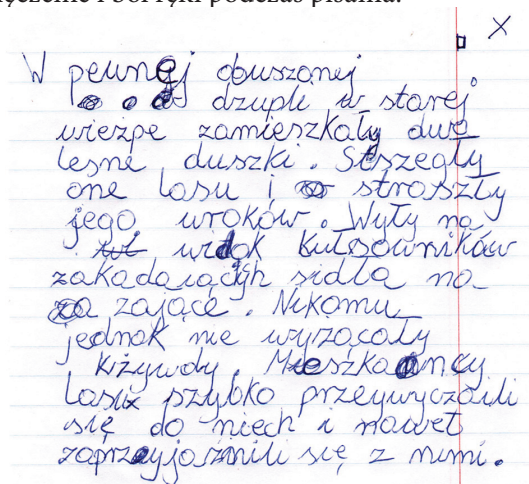 ęczenie i ból ręki podczas pisania.
X
W pewnej opuszonej
dzupli w starej
wieżpe zamieszkały dwa
leśne duszki. Stszegły
one lasu i stroszyły
jego uroków. Wyły na
widok kułsowników
zakadających sidła na
zająće. Nikomu
jednak nie wyrzącały
kiżywdy. Mieszkańcy
Lasu szybko przeywyczaili
się do niech i nawet
zaprzyjaźnili się z nimi.